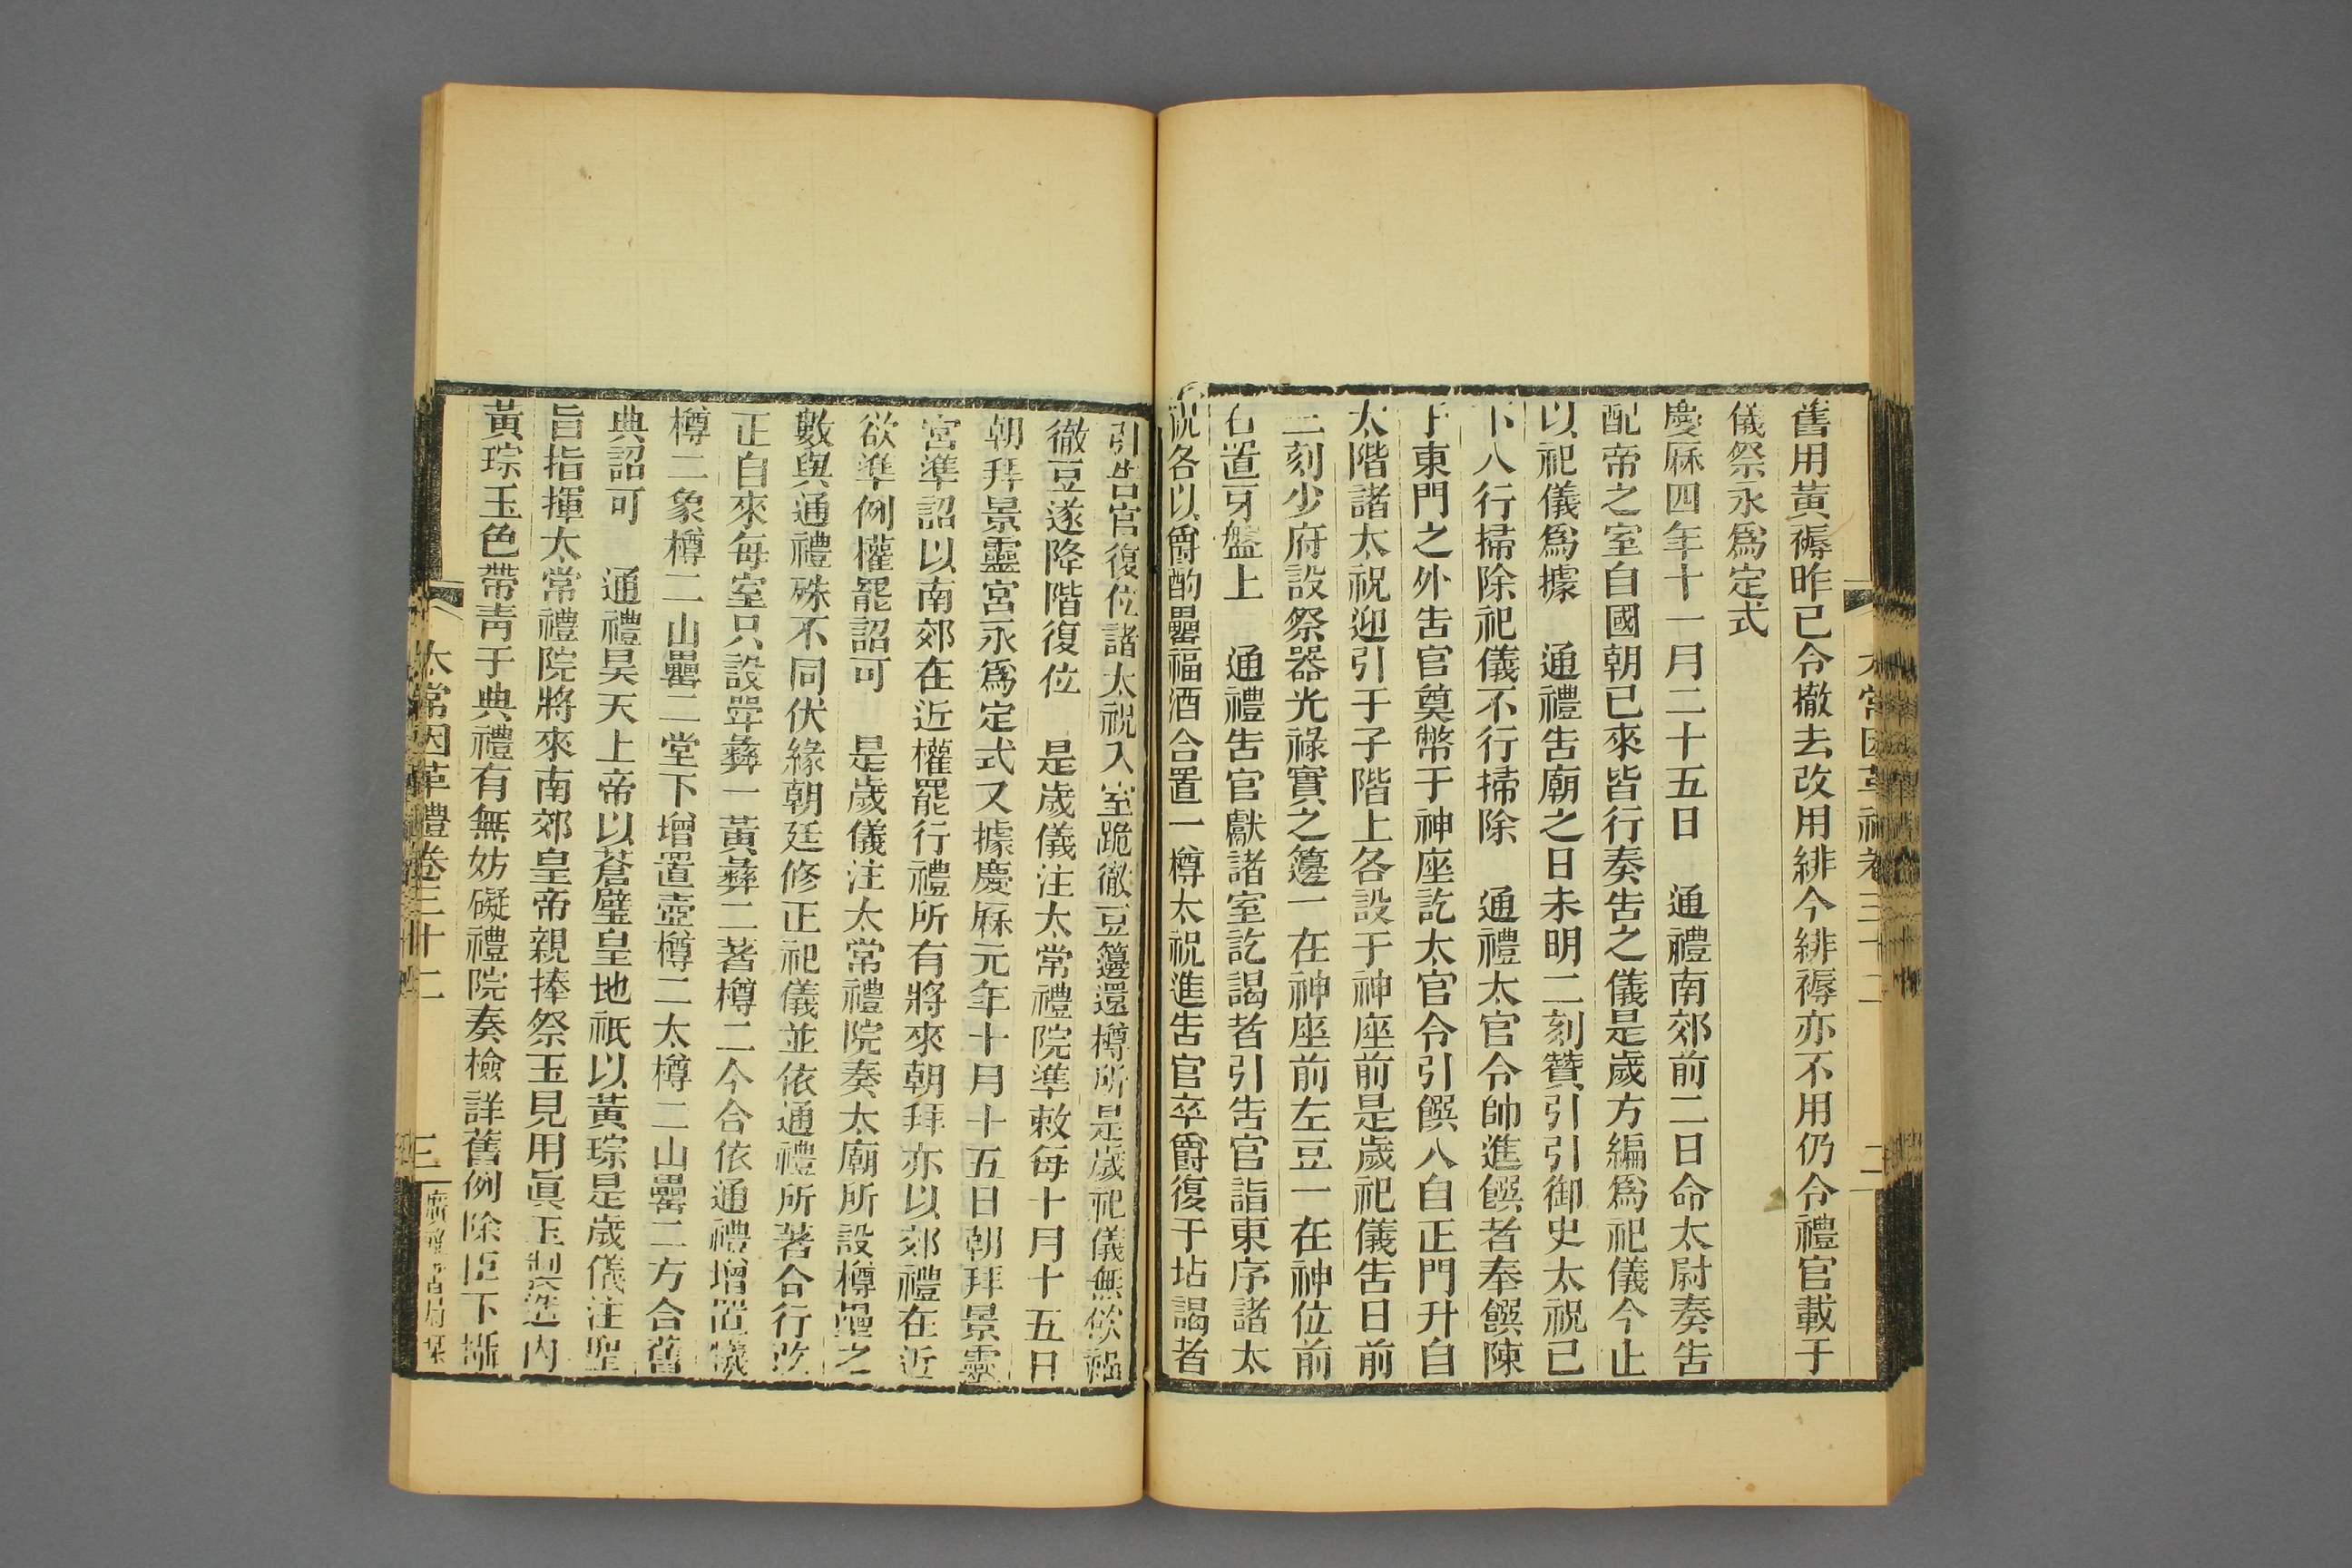 舊用黃褥昨已令撤去改用緋今緋褥亦不用仍令禮官載于
儀祭永爲定式
慶厤四年十一月二十五日　通禮南郊前二日命太尉奏告
配帝之室自國朝已來皆行奏告之儀是歲方編爲祀儀今止
以祀儀爲據　通禮告廟之日未明二刻贊引引御史太祝已
下入行掃除祀儀不行掃除　通禮太官令帥進饌者奉饌陳
于東門之外告官奠幣于神座訖太官令引饌入自正門升自
太階諸太祝迎引于子階上各設于神座前是歲祀儀告日前
二刻少府設祭器光祿實之籩一在神座前左豆一在神位前
右置牙盤上　通禮告官獻諸室訖謁者引告官詣東序諸太
祝各以爵酌罍福酒合置一樽太祝進告官卒爵復于坫謁者
太常因革禮卷三十二　二
引告官復位諸太祝入室跪徹豆籩還樽所是歲祀儀無飲福
徹豆遂降階復位　是歲儀注太常禮院準敕每十月十五日
朝拜景靈宮永爲定式又據慶厤元年十月十五日朝拜景靈
宮準詔以南郊在近權罷行禮所有將來朝拜亦以郊禮在近
欲準例權罷詔可　是歲儀注太常禮院奏太廟所設樽罍之
數與通禮殊不同伏緣朝廷修正祀儀並依通禮所著合行改
正自來每室只設斝彝一黃彝二著樽二今合依通禮增置犧
樽二象樽二山罍二堂下增置壺樽二太樽二山罍二方合舊
典詔可　通禮昊天上帝以蒼璧皇地祇以黃琮是歲儀注聖
旨指揮太常禮院將來南郊皇帝親捧祭玉見用眞玉制造內
黃琮玉色帶靑于典禮有無妨礙禮院奏檢詳舊例除臣下攡
太常因革禮卷三十二　三　廣雅書局栞